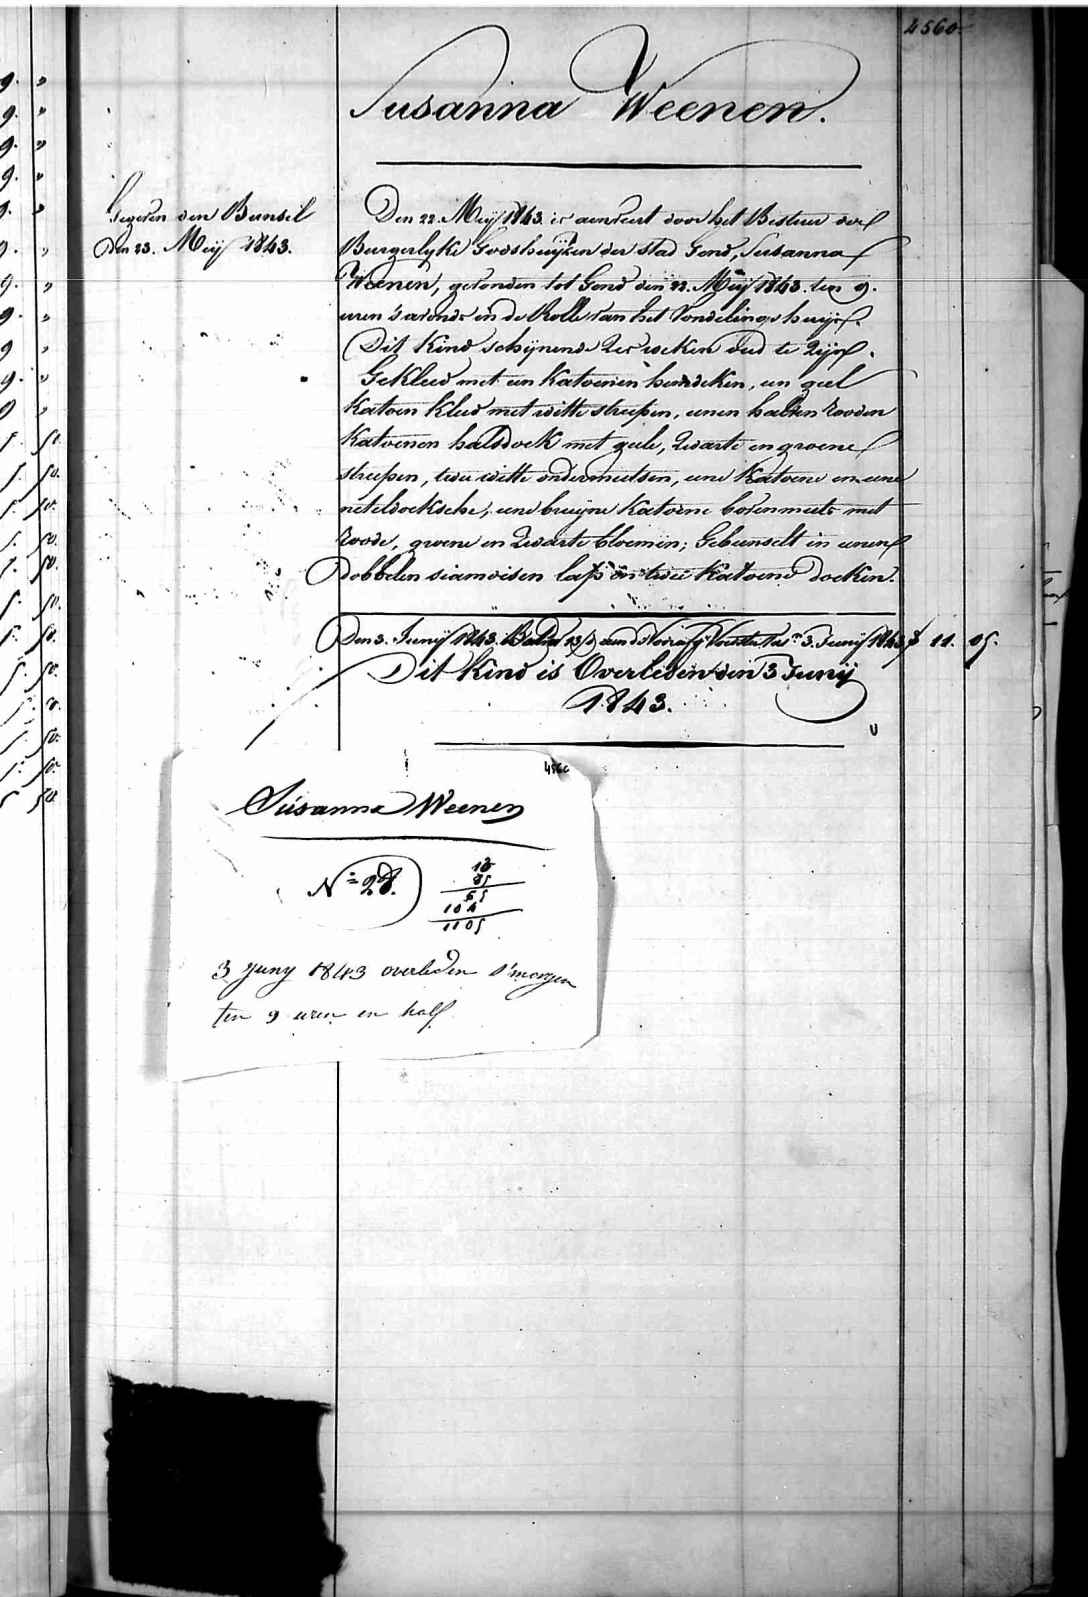 4560.
Susanna Weenen.
Gegeven den Bunsel
den 23. Meij 1843.
Den 22. Meij 1843. is aenveert door het Bestier der
Burgerlyke Godshuijzen der stad Gend, Susanna
Weenen, gevonden tot Gend den 22. Meij 1843. ten 9.
uren s'avonds in de Rolle van het Vondelingshuijs.
Dit Kind schijnende zes weken oud te zijn.
Gekleed met een Katoenen hemdeken, een geel
Katoen Kleed met witte streepen, eenen halven rooden
Katoenen halsdoek met geele, zwarte en groene
streepen, twee witte ondermutsen, eene Katoene en eene
neteldoeksche, eene bruijne Katoene bovenmuts met
roode, groene en zwarte bloemen; Gebunselt in eenen
dobbelen siamoisen lap en twee Katoene doeken.
Den 3. Junij 1843. 13/d aen de 3. Junij 1843 f 11. 05.
Dit Kind is Overleden den 3 Junij
1843.
4560
Susanna Weenen
N= 28.
13
85
65
104
1105
3 Juny 1843 overleden s'morgen
ten 9 uren en half